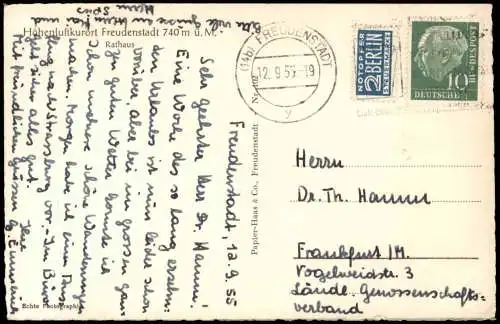 Höhenluftkurort Freudenstadt 740 m ü. M.
Rathaus
Freudenstadt, 12.9.55
Sehr geehrter Herr Dr. Hamm!
Eine Woche des so lang ersehn-
ten Urlaubs ist nun leider schon
vorüber, aber bei im großen gan-
zen guten Wetter konnte ich
schon mehrere schöne Wanderungen
machen. Morgen habe ich einen Aus-
flug nach Strassburg vor. - Im Büro
geht sicher alles gut.
Mit freundlichen Grüssen
Ihre
viele Grüsse an Herrn
Herrn
Echte Photographie
Papier-Haus & Co., Freudenstadt
(14b) FREUDENSTADT
12.9.55-19
y
NOTOPFER
2 BERLIN
STEUERMARKE
DEUTSCHE BUNDESPOST
10
Herrn
Dr. Th. Hamm
Frankfurt/M.
Vogelweidstr. 3
Ländl. Genossenschafts-
verband